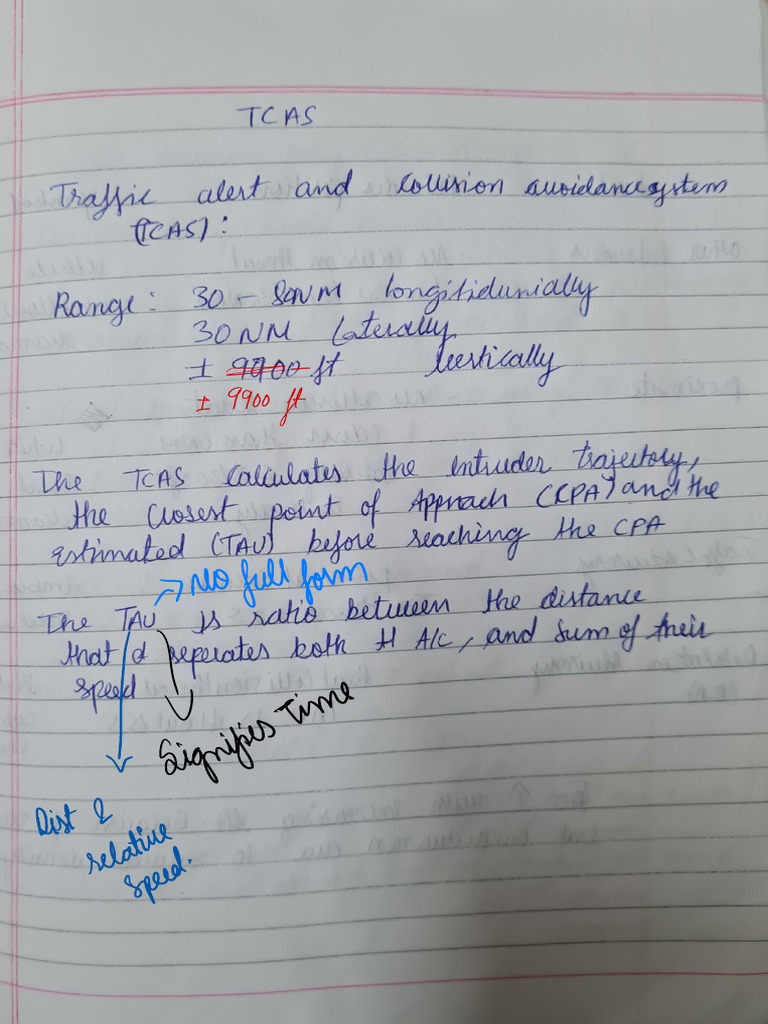 TCAS
Traffic alert and collision avoidance system
(TCAS):
Range: 30 - 80NM longitidunially
30NM Laterally
± 9900 ft vertically
± 9900 ft
The TCAS calculates the intruder trajectory,
the closest point of Approach (CPA) and the
estimated (TAU) before reaching the CPA
→ No full form
The TAU is ratio between the distance
that seperates both A/C, and sum of their
speed
Signifies Time
Dist &
relative
speed.